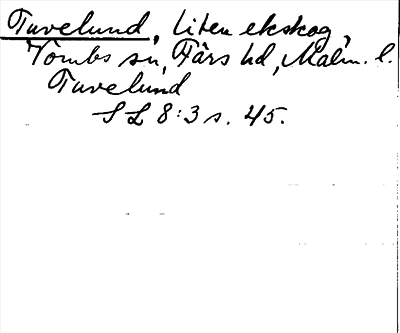 Tuvelund, liten ekskog,
Vombs sn, Färs hd, Malm. l.
Tuvelund
S L 8:3 s. 45.